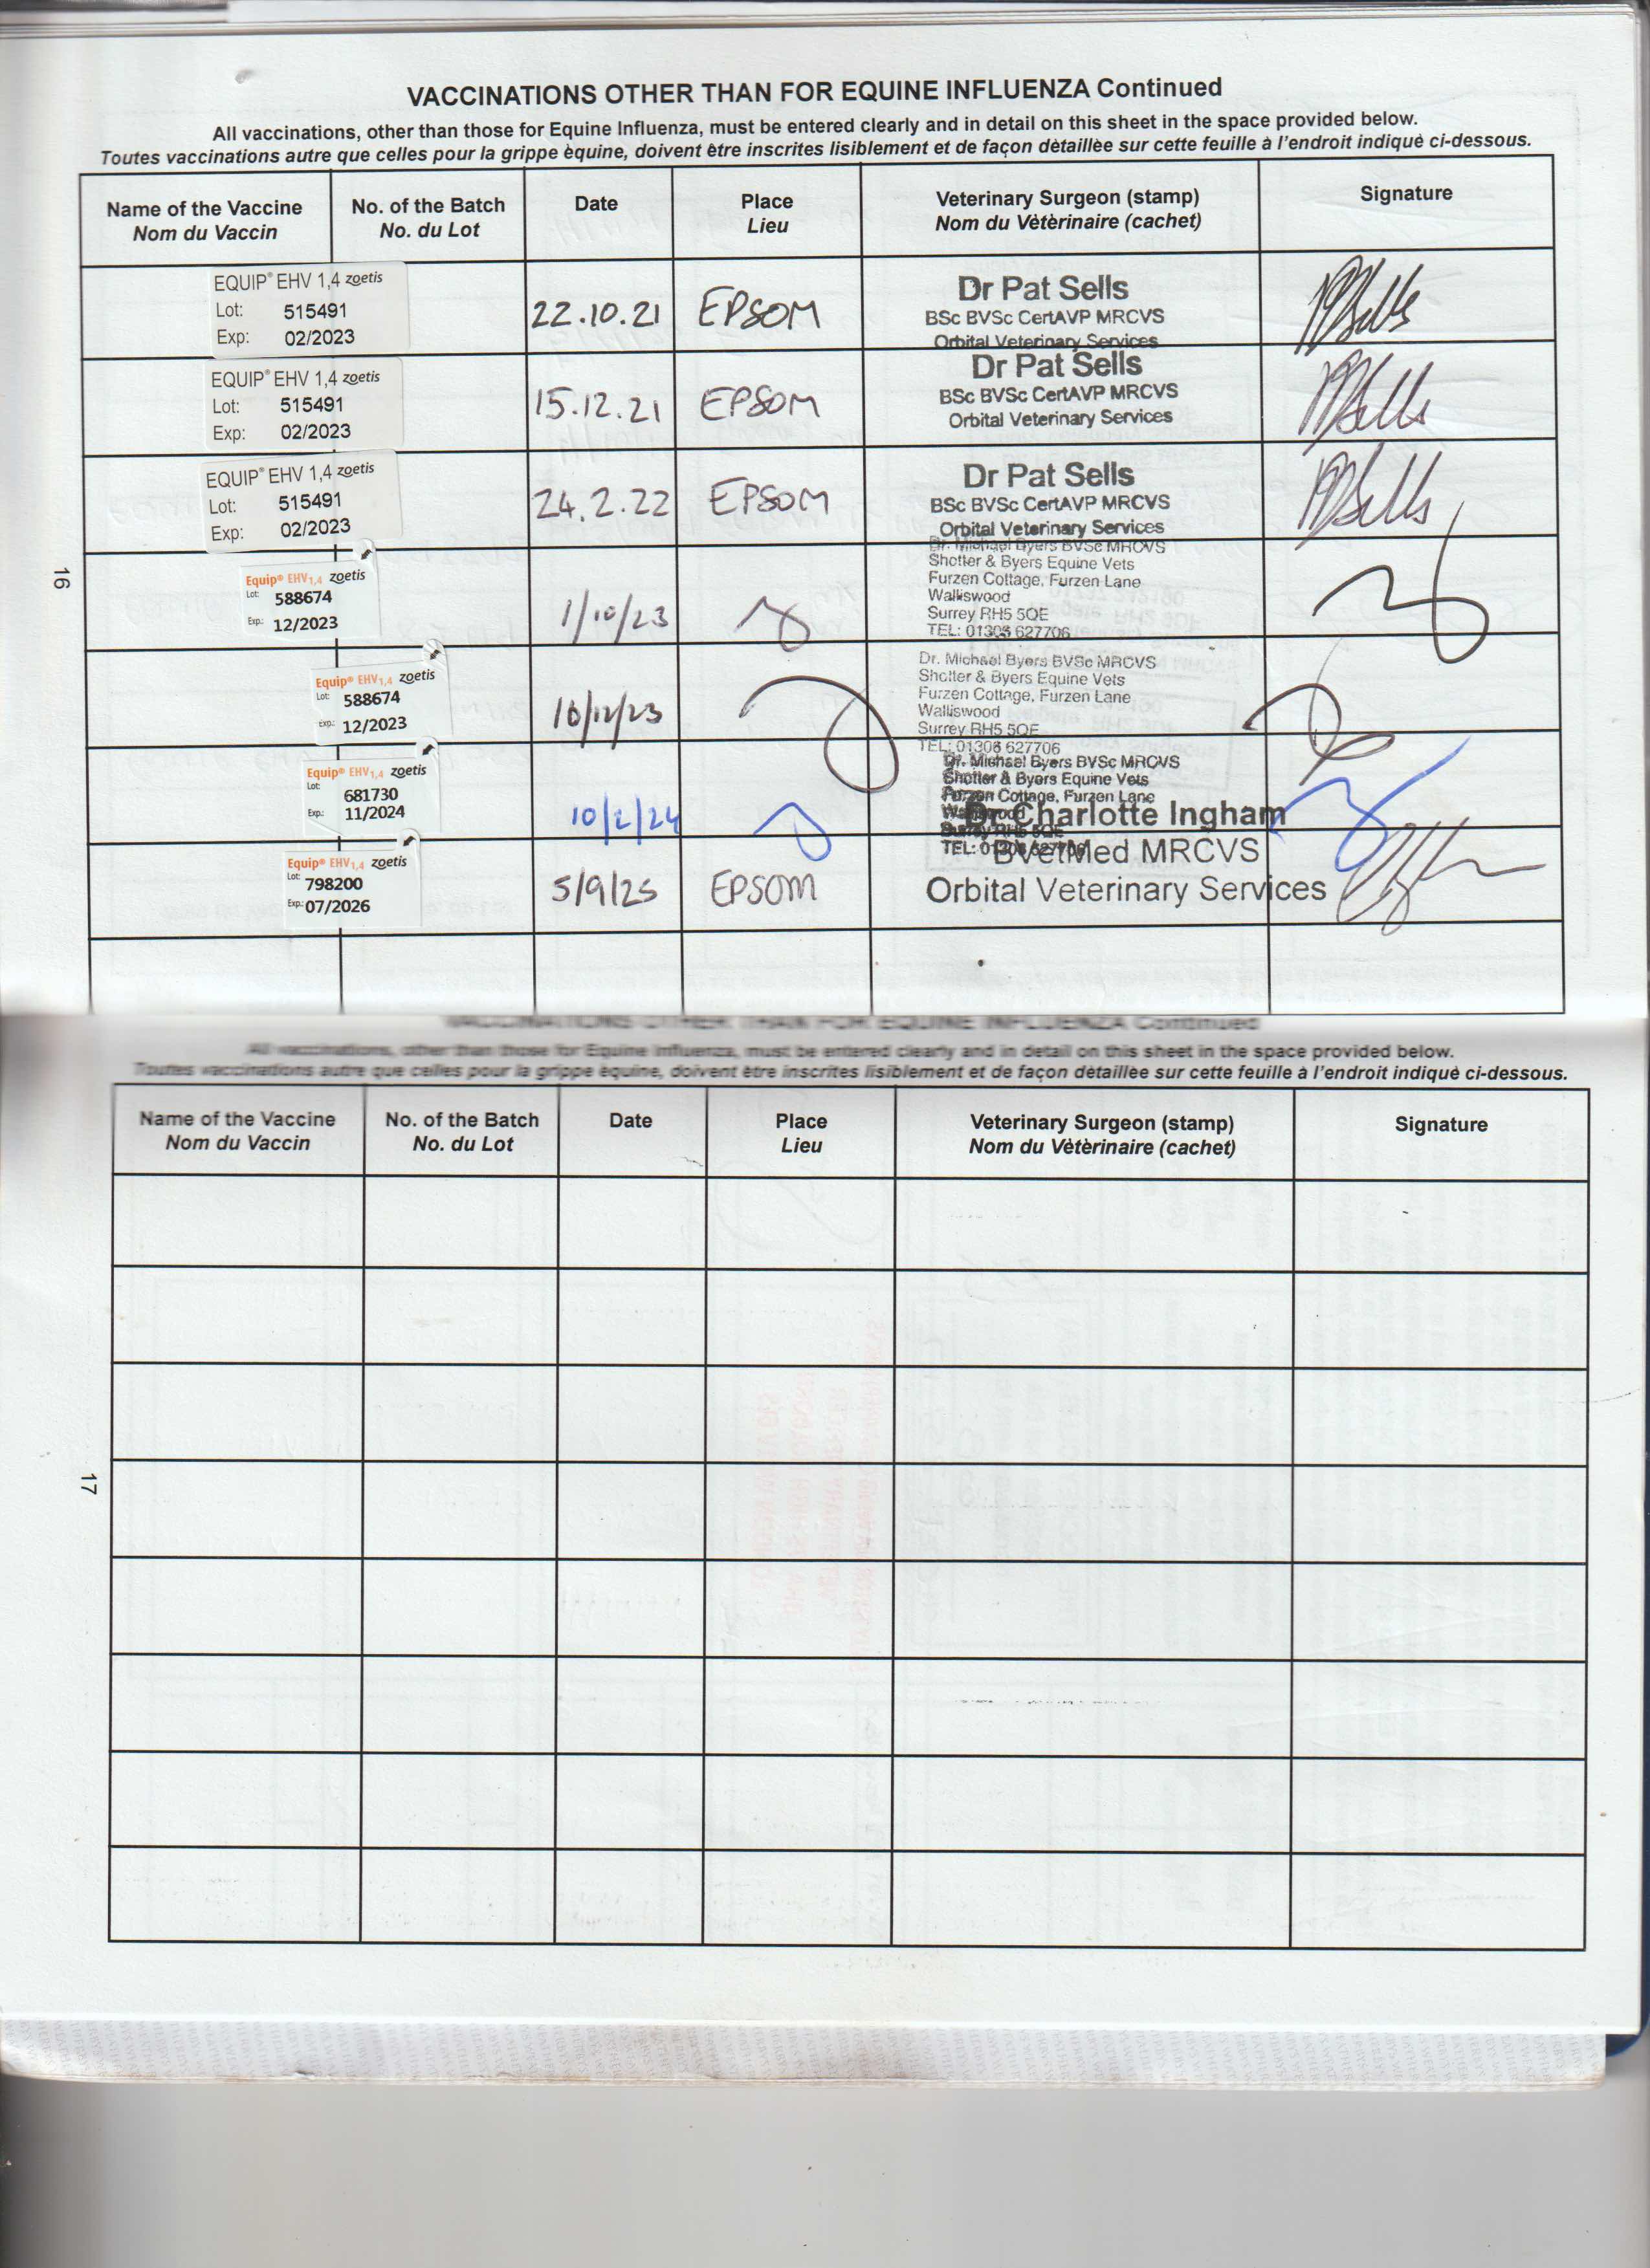 VACCINATIONS OTHER THAN FOR EQUINE INFLUENZA Continued
All vaccinations, other than those for Equine Influenza, must be entered clearly and in detail on this sheet in the space provided below.
Toutes vaccinations autre que celles pour la grippe èquine, doivent être inscrites lisiblement et de façon dètaillèe sur cette feuille à l'endroit indiquè ci-dessous.
Name of the Vaccine No. of the Batch Date Place Veterinary Surgeon (stamp) Signature
Nom du Vaccin No. du Lot Lieu Nom du Vètèrinaire (cachet)
EQUIP® EHV 1,4 zoetis
Lot: 515491
Exp: 02/2023
22.10.21 EPSOM
Dr Pat Sells
BSc BVSc CertAVP MRCVS
Orbital Veterinary Services
EQUIP® EHV 1,4 zoetis
Lot: 515491
Exp: 02/2023
15.12.21 EPSOM
Dr Pat Sells
BSc BVSc CertAVP MRCVS
Orbital Veterinary Services
EQUIP® EHV 1,4 zoetis
Lot: 515491
Exp: 02/2023
24.2.22 EPSOM
Dr Pat Sells
BSc BVSc CertAVP MRCVS
Orbital Veterinary Services
Equip® EHV1,4 zoetis
Lot: 588674
Exp.: 12/2023
1/10/23
Dr. Michael Byers BVSc MRCVS
Shotter & Byers Equine Vets
Furzen Cottage, Furzen Lane
Walliswood
Surrey RH5 5QE
TEL: 01306 627706
Equip® EHV1,4 zoetis
Lot: 588674
Exp.: 12/2023
10/12/23
Dr. Michael Byers BVSc MRCVS
Shotter & Byers Equine Vets
Furzen Cottage, Furzen Lane
Walliswood
Surrey RH5 5QE
TEL: 01306 627706
Equip® EHV1,4 zoetis
Lot: 681730
Exp.: 11/2024
10/2/24
Dr. Michael Byers BVSc MRCVS
Shotter & Byers Equine Vets
Furzen Cottage, Furzen Lane
Walliswood
Surrey RH5 5QE
TEL: 01306 627706
Equip® EHV1,4 zoetis
Lot: 798200
Exp.: 07/2026
5/9/25 EPSOM
Dr Charlotte Ingham
BVetMed MRCVS
Orbital Veterinary Services
16
VACCINATIONS OTHER THAN FOR EQUINE INFLUENZA Continued
All vaccinations, other than those for Equine Influenza, must be entered clearly and in detail on this sheet in the space provided below.
Toutes vaccinations autre que celles pour la grippe èquine, doivent être inscrites lisiblement et de façon dètaillèe sur cette feuille à l'endroit indiquè ci-dessous.
Name of the Vaccine No. of the Batch Date Place Veterinary Surgeon (stamp) Signature
Nom du Vaccin No. du Lot Lieu Nom du Vètèrinaire (cachet)
17